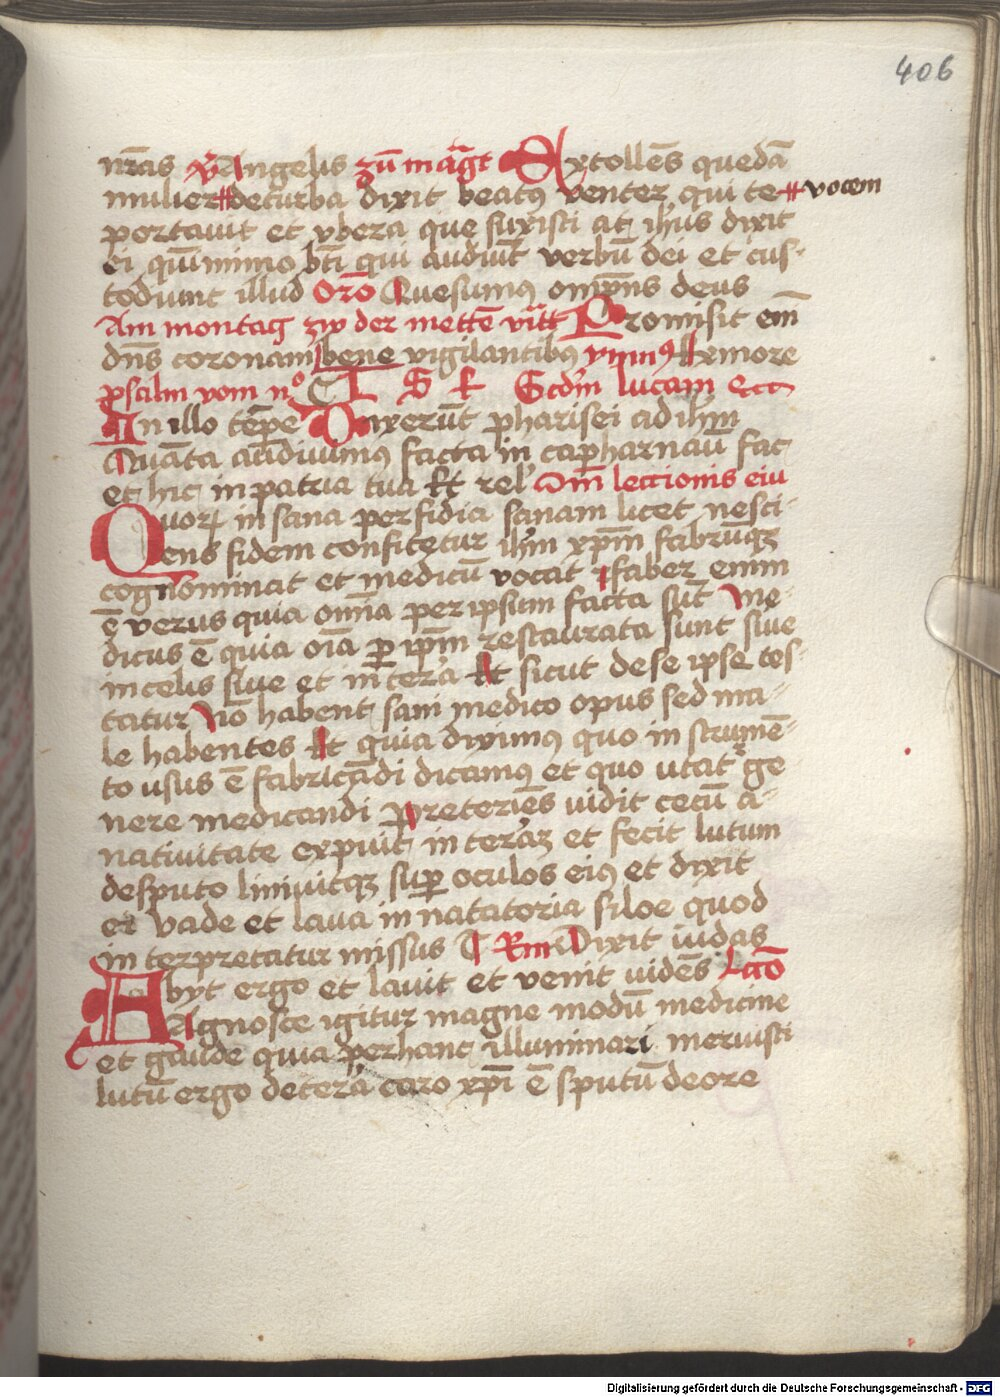 406
nr̄as v̄ Angelis zū mag̃t Extollēs quedā
mulier ⧺ de turba dixit beatꝰ venter qui te ⧺ vocem
portavit et vbera que suxisti at ihūs dixit
ei qūimmo bt̄i qui audiūt verbū dei et cus-
todiunt illud Orō Quesumus omp̄ns deus
Am montag zw der mettē vitt̄ Promisit em̄
dn̄s coronam bene vigilantibꝰ ymnꝰ Ex more
psalm vom n° C L S k Scdm̄ lucam ecc
In illo tēpe Dixerūt pharisei ad ihm̄
Quāta audivimꝰ facta in capharnaū fac
et hic in patria tua Et rel' Om̄ lectionis eiu
Quorꝝ insana perfidia sanam licet nesci-
ens fidem confitetur ihm̄ xp̄m fabrūqꝫ
cognominat et medicū vocat faber enim
ē verus quia omīa per ipsum facta sūt Me-
dicus ē quia oīa ꝑ ip̄m restaurata sunt sive
in celis sive et in terra Et sicut de se ipse tes-
tatur Nō habent sani medico opus sed ma-
le habentes Et quia diximꝰ quo instrumē-
to usus ē fabricādi dicamꝰ et quo utat̄ ge-
nere medicandi Preteriēs vidit cecū a
nativitate expuit in terrā et fecit lutum
de sputo linivitqꝫ suꝑ oculos eiꝰ et dixit
ei Vade et lava in natatoria siloe quod
interpretatur missus Rm Dixit iudas
Abyt ergo et lavit et venit vidēs Lc̄ao
Agnosce igitur magne modū medicine
et gaude quia per hanc illuminari meruisti
lutū ergo de terra caro xp̄i ē sputū de ore
Digitalisierung gefördert durch die Deutsche Forschungsgemeinschaft - DFG